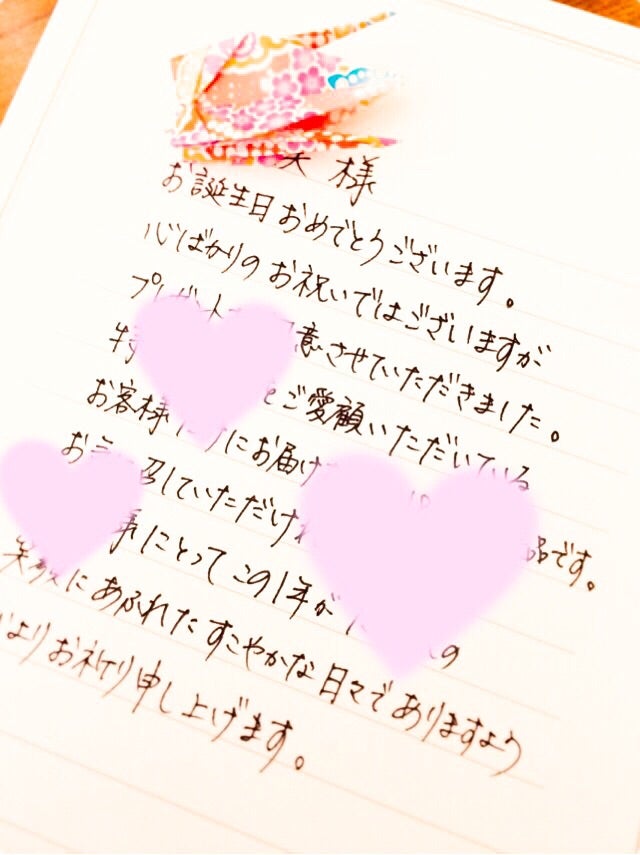 様
お誕生日おめでとうございます。
心ばかりのお祝いではございますが
意させていただきました。
とご愛顧いただいている
お客様 にお届け 品です。
お 召していただけ
様にとってこの1年が の
笑顔にあふれたすこやかな日々でありますよう
よりお祈り申し上げます。